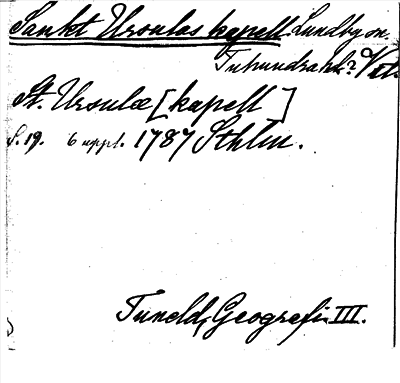 Sankt Ursulas kapell Lundby sn.
Tuhundra hd? Vstm.
St. Ursulæ [kapell]
S. 19. 6 uppl. 1787 Sthlm.
Tuneld, Geografi III.